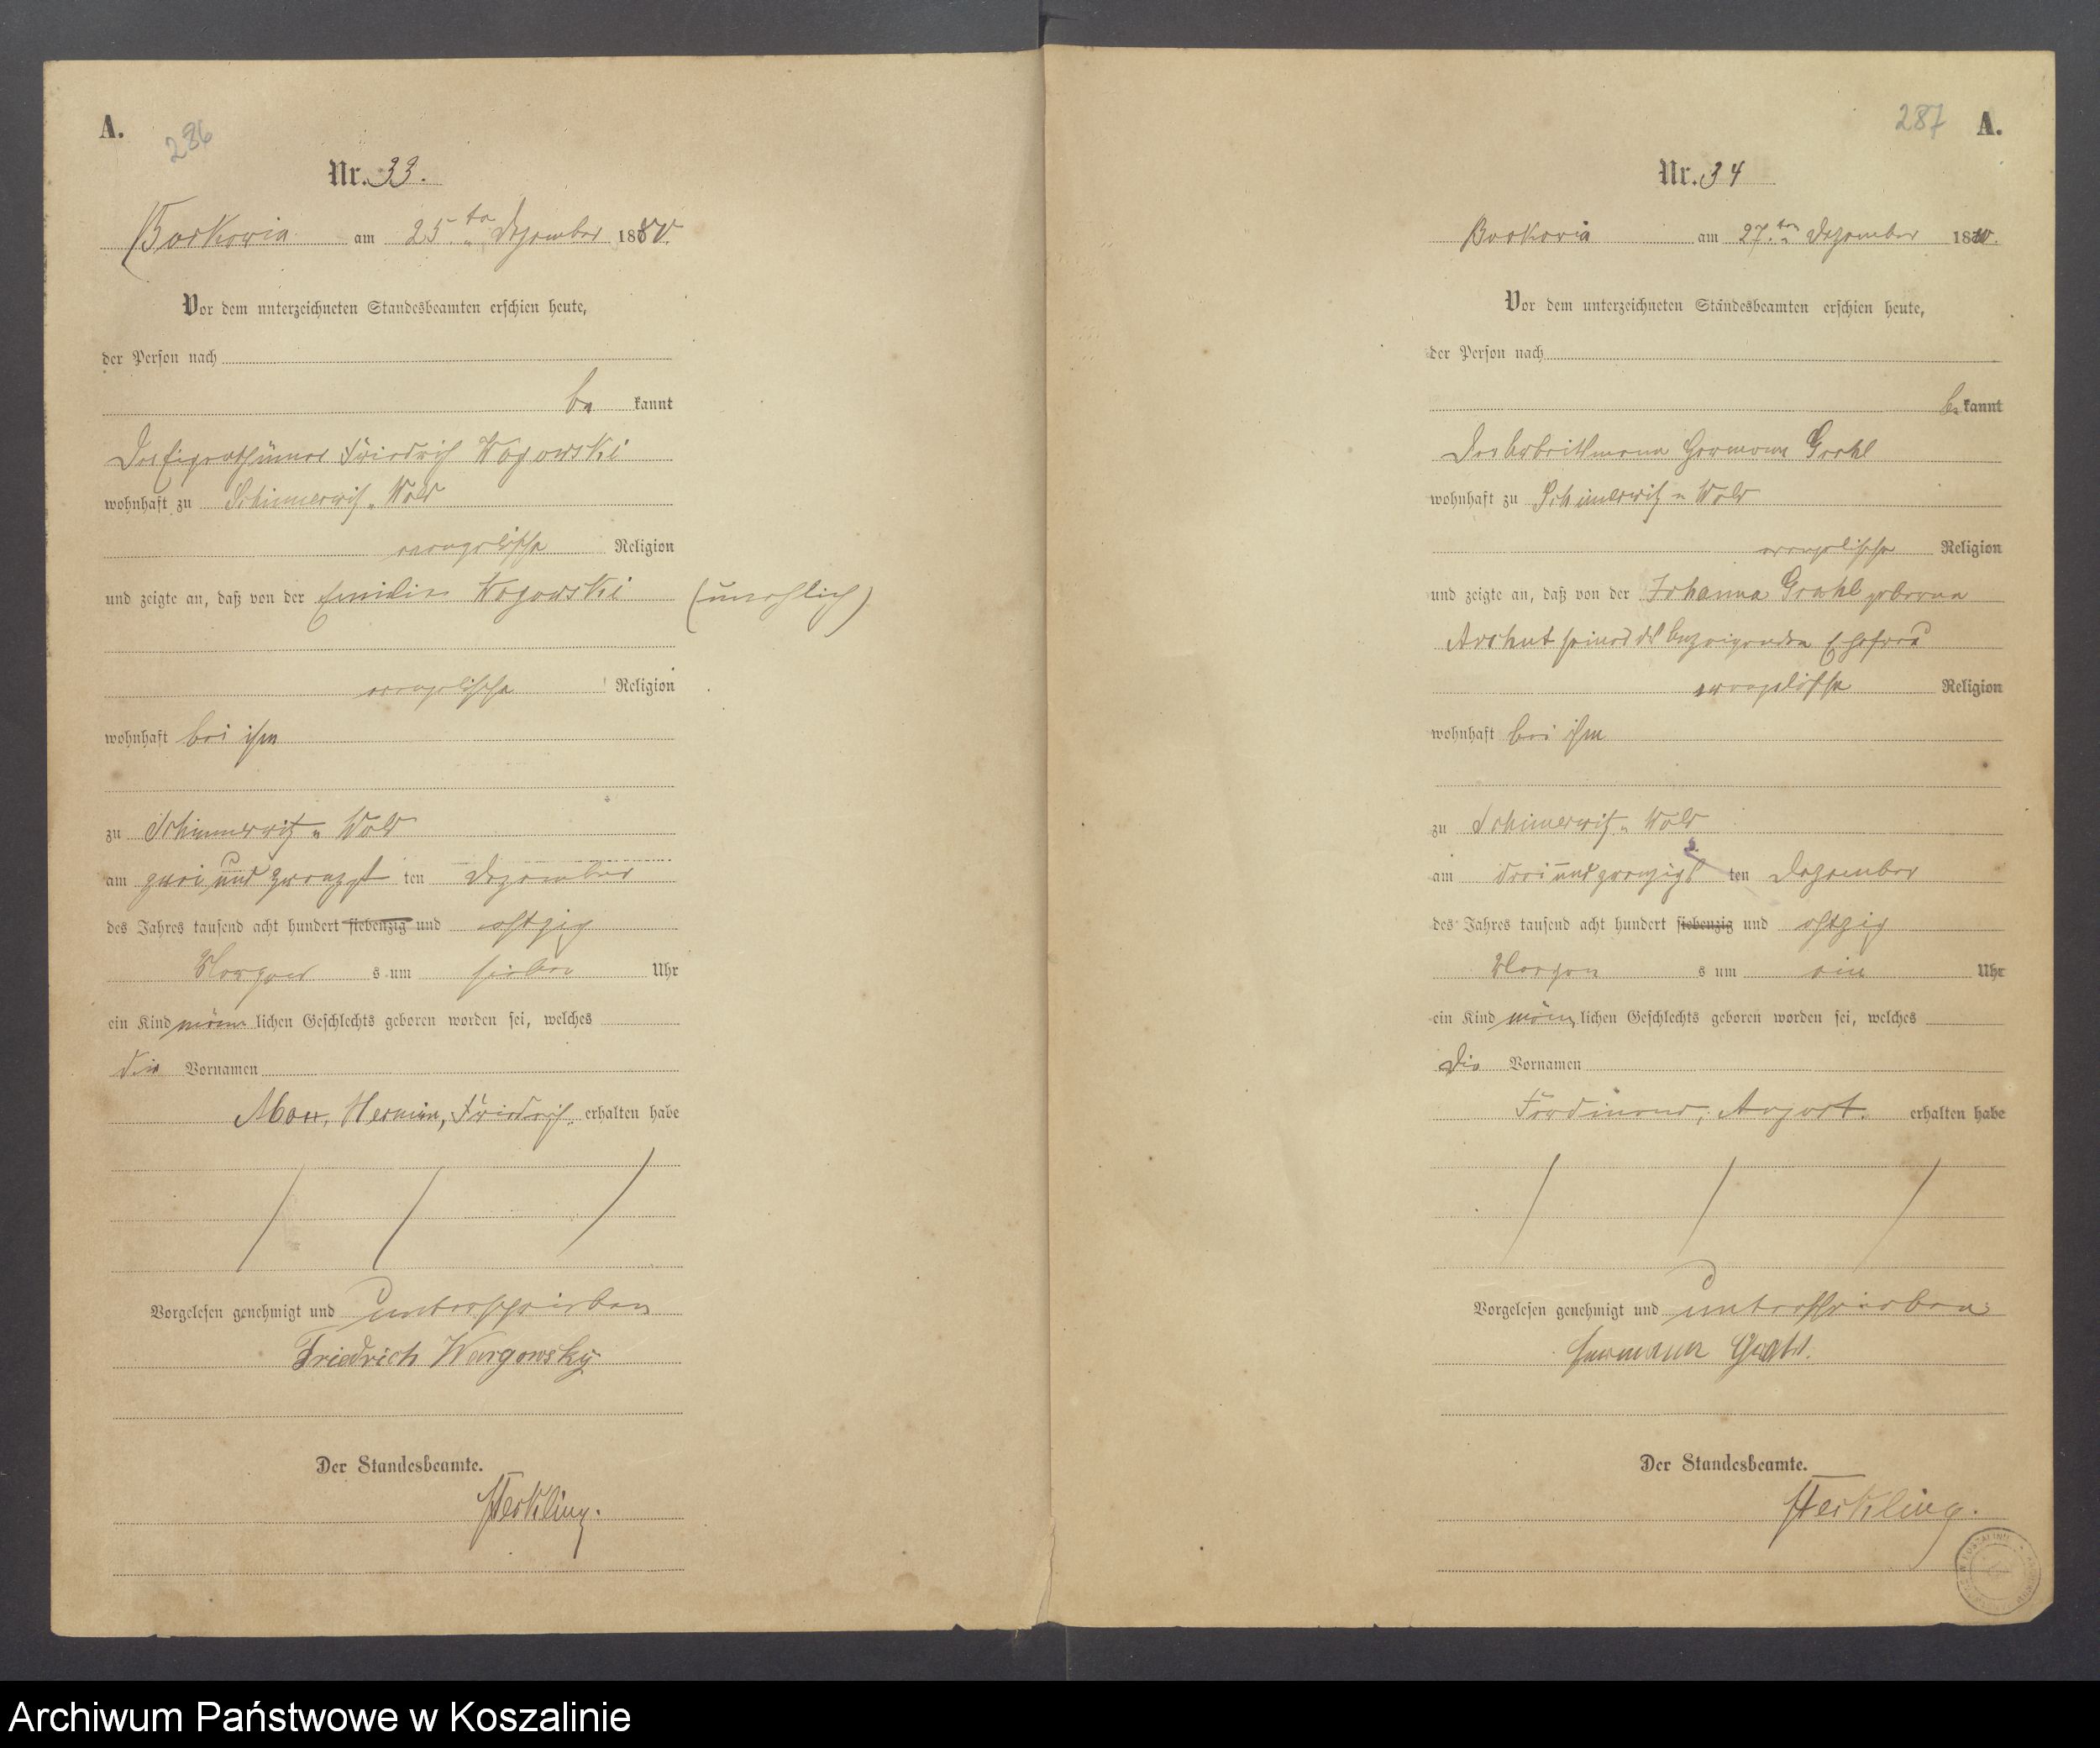 A.
286
Nr. 33.
Borkowin am 25.ten Dezember 1880.
Vor dem unterzeichneten Standesbeamten erschien heute,
der Person nach
be kannt
Der Eigenthümer Friedrich
wohnhaft zu Schimmerwitz Wold
evangelischer Religion
und zeigte an, daß von der Emilie (unehlich)
evangelischer Religion
wohnhaft bei ihm
zu Schimmerwitz Wold
am zwei und zwanzigst ten Dezember
des Jahres tausend acht hundert siebenzig und achtzig
Morgens um sieben Uhr
ein Kind männ lichen Geschlechts geboren worden sei, welches
die Vornamen
Max, Hermann, Friedrich erhalten habe
Vorgelesen genehmigt und unterschrieben
Friedrich Wargowsky
Der Standesbeamte.
287 A.
Nr. 34
am 27.ten Dezember 1880.
Vor dem unterzeichneten Standesbeamten erschien heute,
der Person nach
be kannt
Der Arbeitsmann Hermann Grahl
wohnhaft zu Schimmerwitz Wold
evangelischer Religion
und zeigte an, daß von der Johanna Grahl geborene
seiner des Anzeigenden Ehefrau
evangelischer Religion
wohnhaft bei ihm
zu Schimmerwitz Wold
am drei und zwanzigst ten Dezember
des Jahres tausend acht hundert siebenzig und achtzig
Morgen s um ein Uhr
ein Kind männ lichen Geschlechts geboren worden sei, welches
die Vornamen
Ferdinand, August. erhalten habe
Vorgelesen genehmigt und unterschrieben
Hermann Grahl.
Der Standesbeamte.
Archiwum Państwowe w Koszalinie